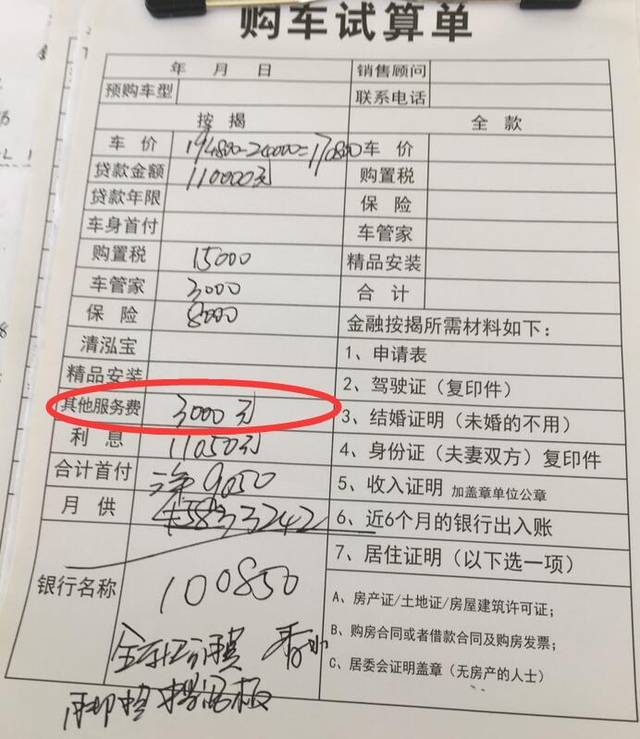 购车试算单
年 月 日 销售顾问
预购车型 联系电话
按揭 全款
车价 194800-24000=170800 车价
贷款金额 110000元 购置税
贷款年限 保险
车身首付 车管家
购置税 15000 精品安装
车管家 3000 合计
保险 8000 金融按揭所需材料如下:
清泓宝 1、申请表
精品安装 2、驾驶证(复印件)
其他服务费 3000元 3、结婚证明(未婚的不用)
利息 11050元 4、身份证(夫妻双方)复印件
合计首付 9050 5、收入证明 加盖章单位公章
月供 3242 6、近6个月的银行出入账
7、居住证明(以下选一项)
银行名称 100850 A、房产证/土地证/房屋建筑许可证;
B、购房合同或者借款合同及购房发票;
C、居委会证明盖章(无房产的人士)
香水